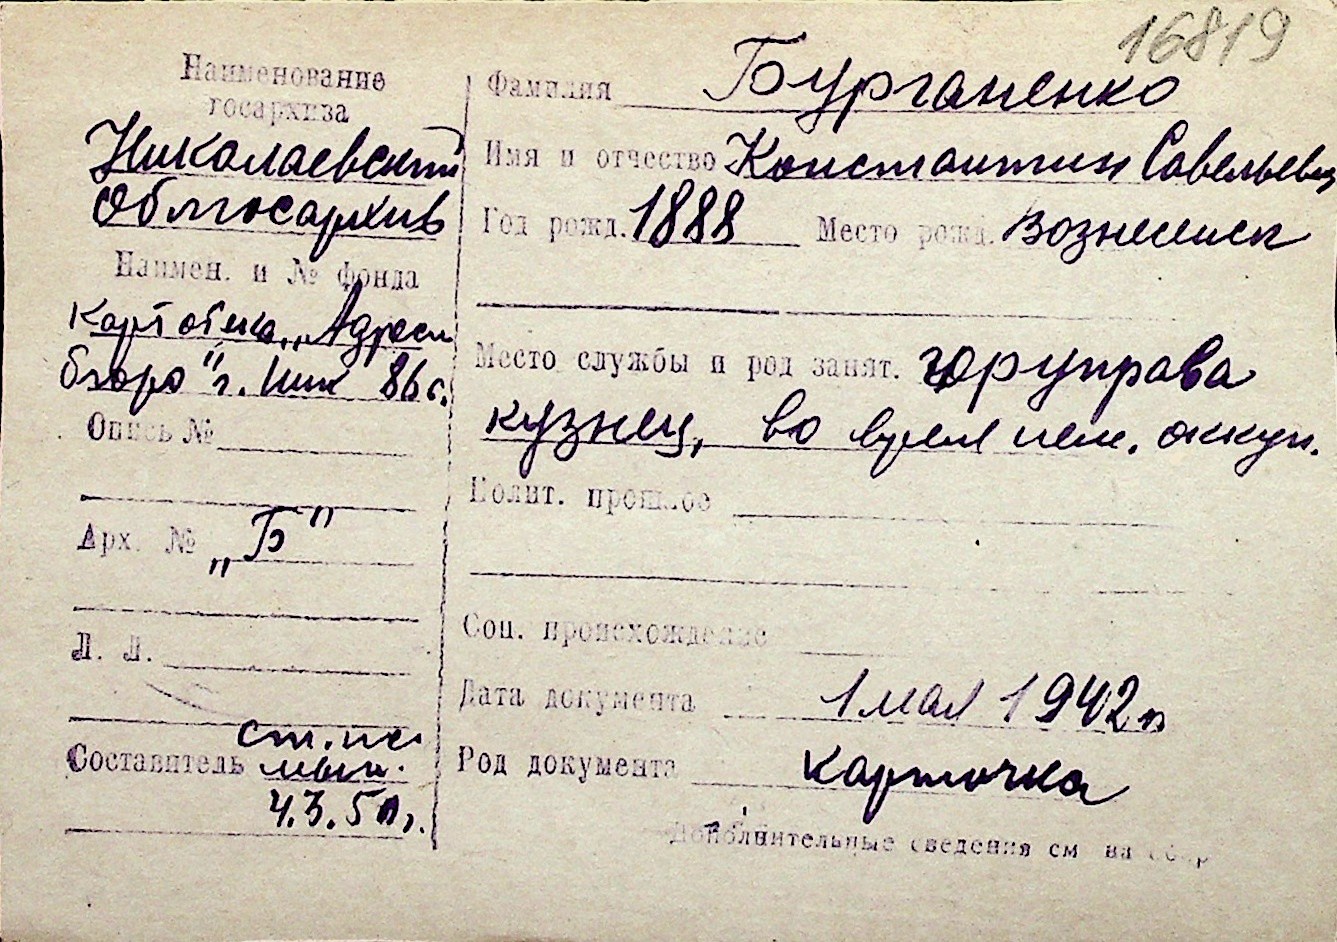 16819
Наименование
госархива
Николаевский
Облгосархив
Наимен. и № фонда
Картотека „Адресн
бюро" г. Ник 86 с.
Опись №
Арх. № „Б"
Л. Л.
Составитель ст. н.с.
4.3.50 г.
Фамилия Бурганенко
Имя и отчество Константин Савельевич
Год рожд. 1888 Место рожд. Вознесенск
Место службы и род занят. горуправа
кузнец, во время нем. оккуп.
Полит. прошлое
Соц. происхождение
Дата документа 1 мая 1942 г.
Род документа карточка
Дополнительные сведения см на обор